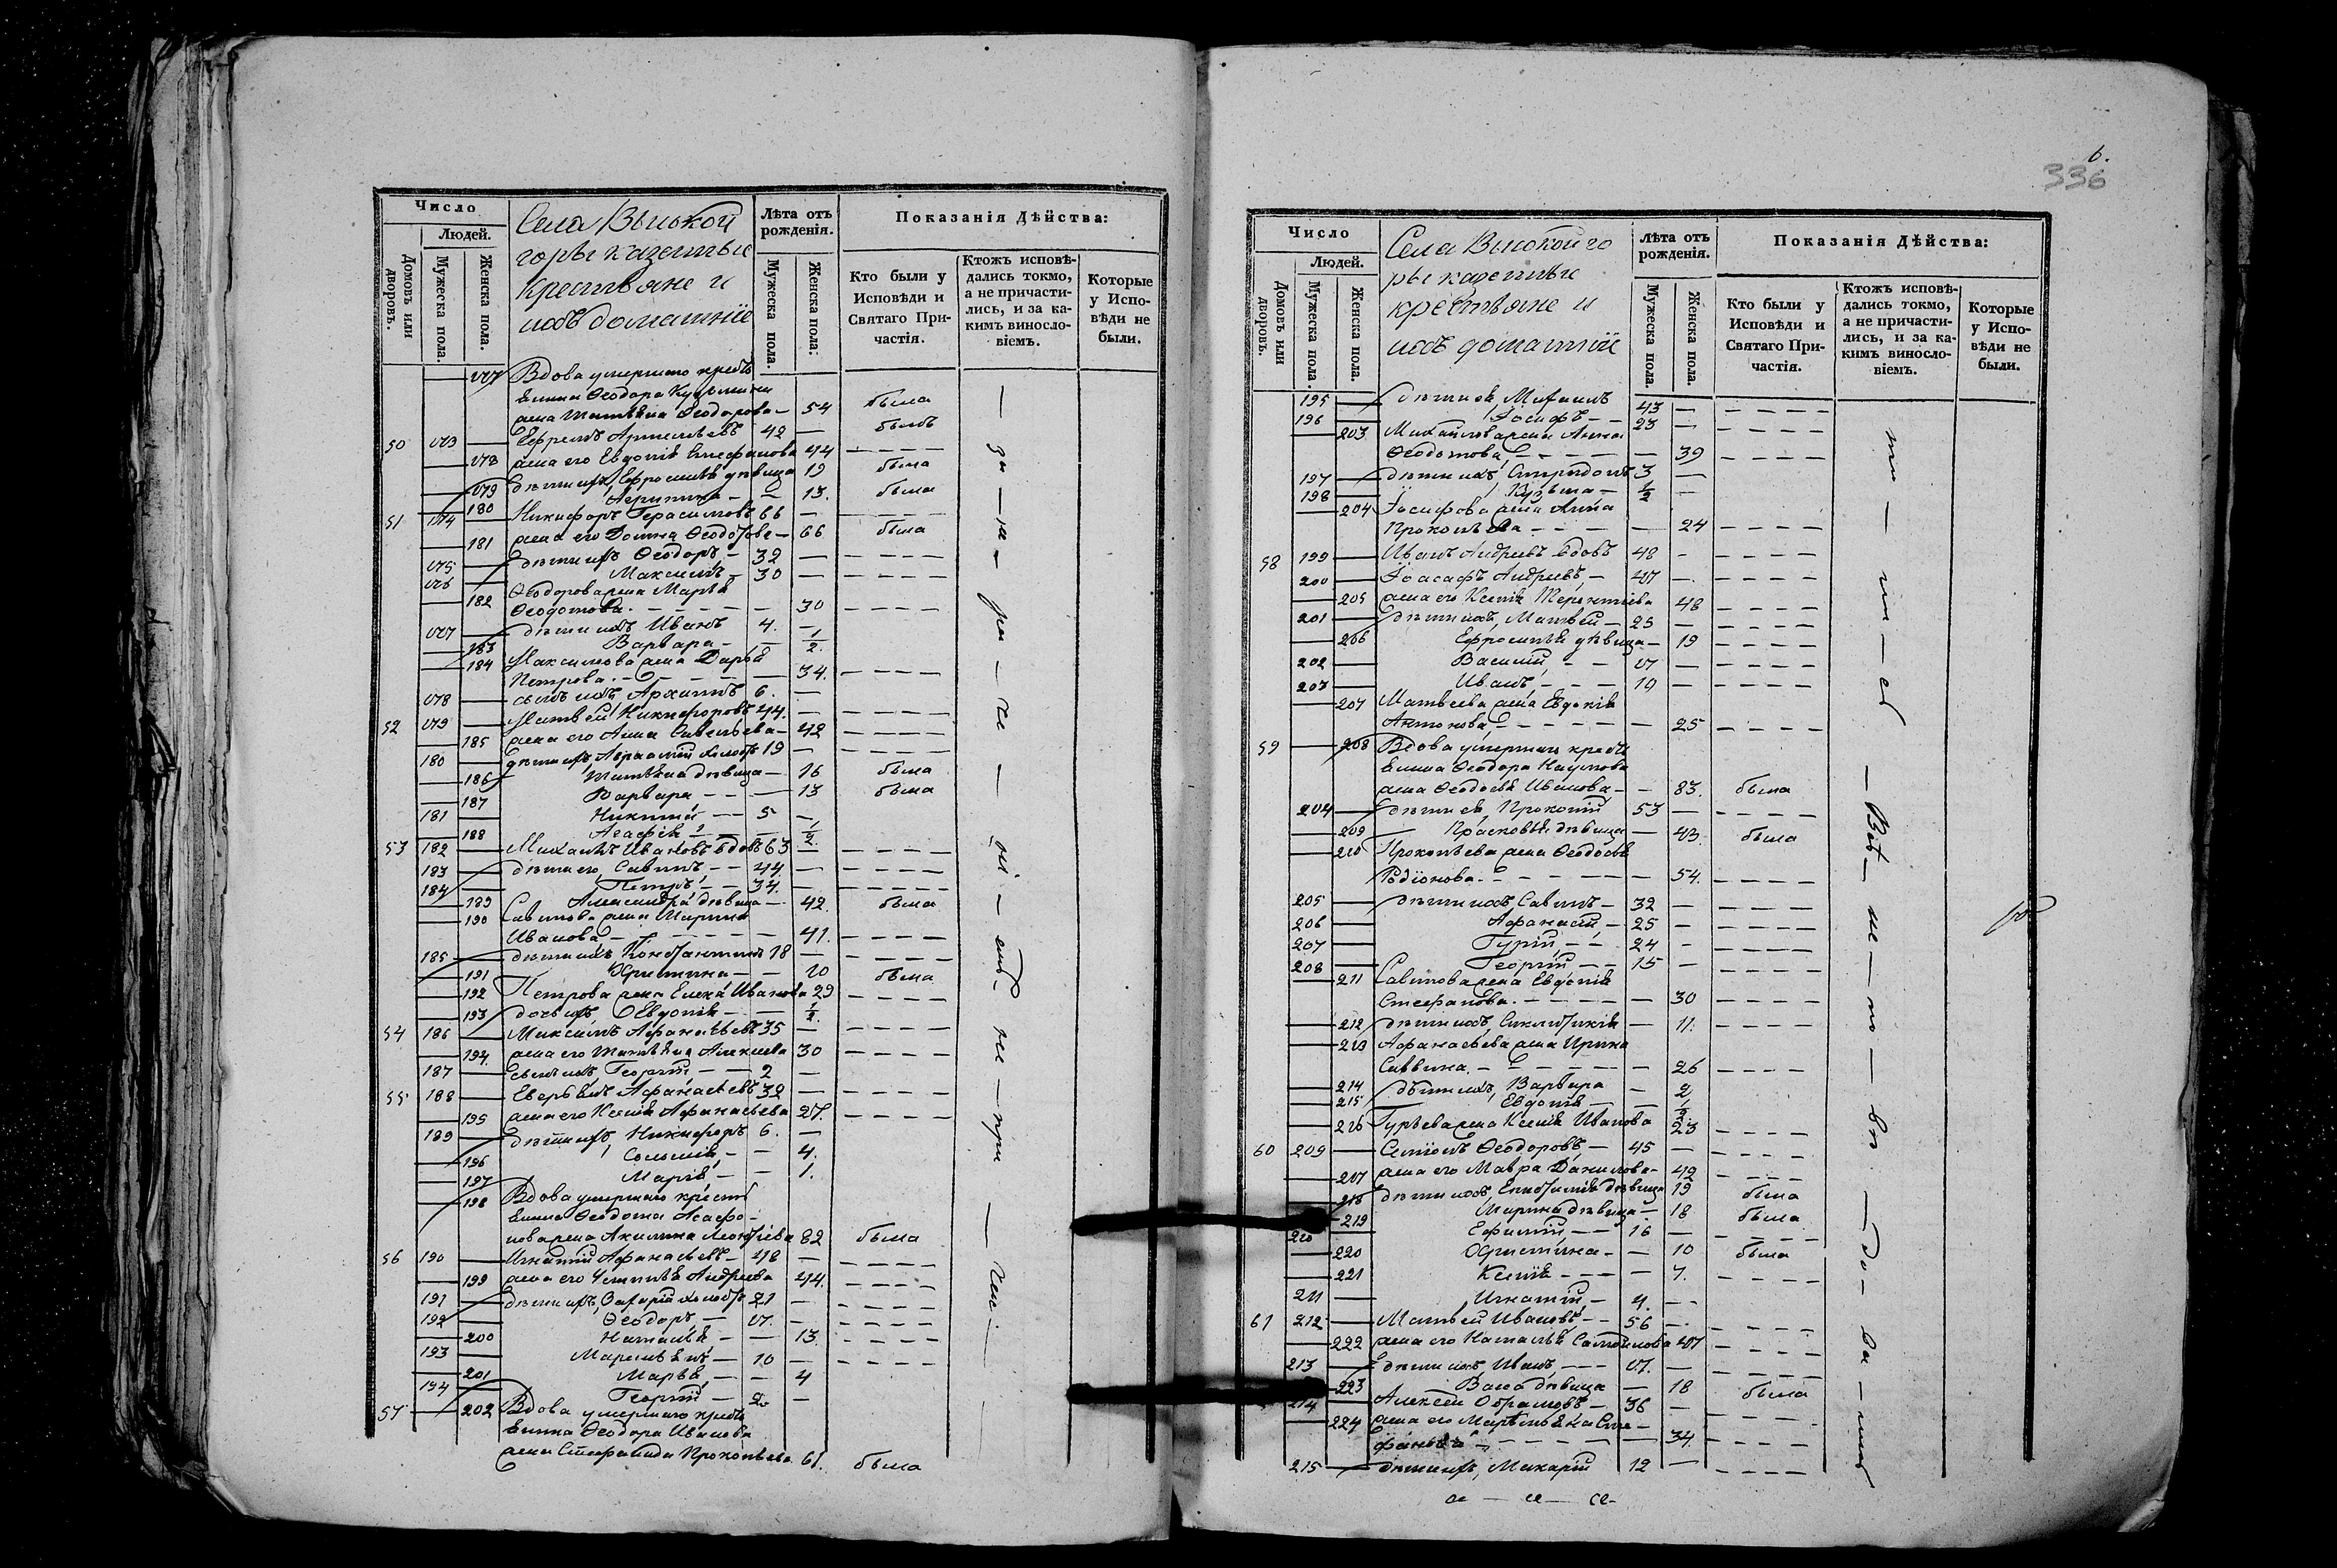 Число
Людей.
Домовъ или дворовъ.
Мужеска пола.
Женска пола.
Села Высокой
горы казенные
крестьяне и
ихъ домашніе
Лѣта отъ рожденія.
Мужеска пола
Женска пола:
Показанія Дѣйства:
Кто были у Исповѣди и Святаго Причастія.
Ктожъ исповѣдались токмо, а не причастились, и за какимъ винословіемъ.
Которые у Исповѣди не были.
Вдова умершаго кресть
янина Ѳеодора Кузьмина
жена Татьяна Ѳеодорова — 54 была
50 Ефремъ Артемьевъ 42 — былъ
178 жена его Евдокія Стефанова 44
179 дѣти ихъ, Ефросинья дѣвица 19 была
180 Агрипина — 13. была
51 174 Никифоръ Герасимовъ 66 —
181 жена его Домна Ѳеодотова — 66 была
175 дѣти ихъ Ѳеодоръ — 32 —
176 Максимъ — 30 —
182 Ѳеодорова жена Марья
Ѳеодотова — 30
177 дѣти ихъ Иванъ 4. —
183 Варвара — 1/2.
184 Максимова жена Дарья
Петрова — 34.
178 сынъ ихъ Архипъ 6. —
52 179 Матвей Никифоровъ 44. —
185 жена его Анна Савельева — 42
180 дѣти ихъ, Афанасій холостъ 19 —
186 Татьяна дѣвица — 16 была
187 Варвара — 13 была
181 Никита — 5 —
188 Агафія — 1/2.
53 182 Михаилъ Ивановъ вдовъ 63 —
183 дѣти его, Савинъ — 44 —
184 Петръ — 34. —
189 Александра дѣвица — 42. была
190 Савинова жена Марина
Иванова — 41.
185 дѣти ихъ Константинъ 18 —
191 Христина — 20 была
192 Петрова жена Елена Иванова 29
193 дочь ихъ, Евдокія — 1/2.
54 186 Максимъ Афанасьевъ 35 —
194. жена его Татьяна Алексеева 30
187 сынъ ихъ Георгій — 2 —
55 188 Афанасьевъ 32 —
195 жена его Ксенія Афанасьева 27.
189 дѣти ихъ, Никифоръ 6. —
196 Соломія — 4.
197 Марія — 1.
198 Вдова умершаго кресть
янина Ѳеодота Агафо-
нова жена Акилина Леонтіева 82 была
56 190 Игнатій Афанасьевъ — 48 —
199 жена его Андреева 44.
191 дѣти ихъ, Захарій холостъ 21 —
192 Ѳеодоръ — 17. —
200 Наталья — 13.
193 10 —
201 Марья — 4
194 Георгій — 2 —
57 202 Вдова умершаго кресть
янина Ѳеодора Иванова
жена Стефанида Прокопьева 61. была
за — не — ра — че — ні — емъ — не — при — час —
6.
336
Число
Людей.
Домовъ или дворовъ.
Мужеска пола.
Женска пола.
Села Высокой го
ры казенные
крестьяне и
ихъ домашніи
Лѣта отъ рожденія.
Мужеска пола
Женска пола.
Показанія Дѣйства:
Кто были у Исповѣди и Святаго Причастія.
Ктожъ исповѣдались токмо, а не причастились, и за какимъ винословіемъ.
Которые у Исповѣди не были.
195 дѣти ея Михаилъ 43 —
196 Іосифъ — 23 —
203 Михайлова жена Анна
Ѳеодотова — 39
197 дѣти ихъ, Спиридонъ 3 —
198 Кузьма — 1/2 —
204 Іосифова жена Анна
Прокопьева — 24
58 199 Иванъ Андреевъ вдовъ 48 —
200 Іоасафъ Андреевъ — 47 —
205 жена его Ксенія Терентіева 48
201 дѣти ихъ, Матвей — 25 —
206 Ефросинья дѣвица — 19
202 Василій — 17 —
203 Иванъ — 10 —
207 Матвеева жена Евдокія
Антонова — 25
59 208 Вдова умершаго кресть
янина Ѳеодора Наумова
жена Ѳеодосья Иванова — 83. была
204 дѣти ея, Прокопій 53 —
209 Прасковья дѣвица — 43. была
210 Прокопьева жена Ѳеодосья
Родіонова — 54.
205 дѣти ихъ, Савинъ — 32 —
206 Афанасій — 25 —
207 Гурій — 24 —
208 Георгій — 15 —
211 Савинова жена Евдокія
Стефанова — 30
212 дѣти ихъ, Синклитикія — 11.
213 Афанасьева жена Ирина
Саввина — 26
214 дѣти ихъ, Варвара — 2
215 Евдокія — 1/2
216 Гурьева жена Ксенія Иванова 23
60 209 Семіонъ Ѳеодоровъ — 45 —
217 жена его Мавра Данилова — 42
218 дѣти ихъ, дѣвица 19 была
219 Марина дѣвица — 18 была
210 Ефимій — 16 —
220 Христина — 10 была
221 Ксенія — 7.
211 Игнатій — 4. —
61 212 Матвей Ивановъ — 56 —
222 жена его Наталья Самойлова 47
213 дѣти ихъ Иванъ — 17. —
223 Васса дѣвица — 18 была
214 Алексей Абрамовъ — 36 —
224 жена его Сте-
фанова — 34.
215 дѣти ихъ, Макарій 12 —
ти — ли — сь — Всѣ — не — по — вп — до — ва — ли